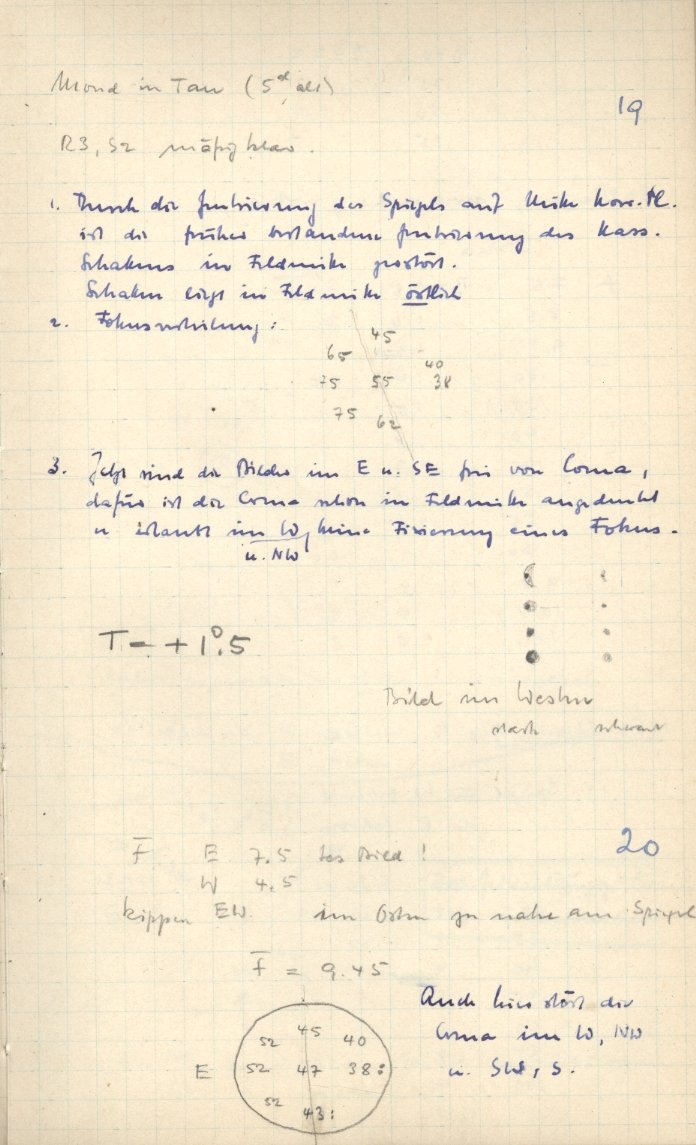 Mond in Tau (5ᵈ alt)
19
R3, S2 mäßig klar.
1. Durch die Zentrierung des Spiegels auf Mitte Korr. Pl.
ist die früher bestandene Zentrierung des Kass.
Schakens in Feldmitte gestört.
Schaken liegt in Feldmitte östlich
2. Fokusverteilung:
45
65
40
75 55 38
75
62
3. Jetzt sind die Bilder im E u. SE frei von Coma,
dafür ist die Coma schon in Feldmitte angedeutet
u. erlaubt im W, keine Fixierung eines Fokus.
u. NW
T = + 1°.5
Bild im Westen
stark schwach
20
F̄ E 7.5 Bild!
W 4.5
kippen EW. im Osten zu nahe am Spiegel
F̄ = 9.45
Auch hier stört die
Coma im W, NW
u. SW, S.
45
52 40
E 52 47 38:
52
43: